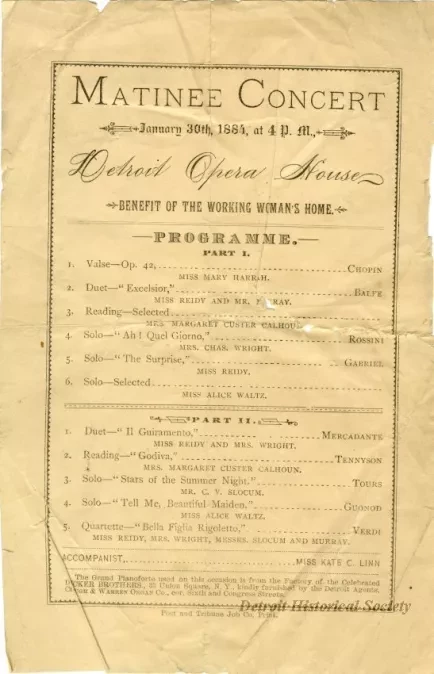 MATINEE CONCERT
January 30th, 1884, at 4 P. M.,
Detroit Opera House
BENEFIT OF THE WORKING WOMAN'S HOME.
PROGRAMME.
PART I.
1. Valse—Op. 42, CHOPIN
MISS MARY
2. Duet—"Excelsior," BALFE
MISS REIDY AND MR.
3. Reading—Selected
MRS. MARGARET CUSTER
4. Solo—"Ah! Quel Giorno," ROSSINI
MRS. CHAS. WRIGHT.
5. Solo—"The Surprise," GABRIEL
MISS REIDY.
6. Solo—Selected
MISS ALICE WALTZ.
PART II.
1. Duet—"Il Guiramento," MERCADANTE
MISS REIDY AND MRS. WRIGHT.
2. Reading—"Godiva," TENNYSON
MRS. MARGARET CUSTER CALHOUN.
3. Solo—"Stars of the Summer Night." TOURS
MR. C. V. SLOCUM.
4. Solo—"Tell Me, Beautiful Maiden," GUONOD
MISS ALICE WALTZ.
5. Quartette—"Bella Figlia Rigoletto," VERDI
MISS REIDY, MRS. WRIGHT, MESSRS. SLOCUM AND MURRAY.
ACCOMPANIST, MISS KATE C. LINN
The Grand Pianoforte used on this occasion is from the Factory of the Celebrated
DECKER BROTHERS, 33 Union Square, N. Y., kindly furnished by the Detroit Agents,
& WARREN ORGAN CO., cor. Sixth and Congress Streets.
Detroit Historical Society
Post and Tribune Job Co. Print.